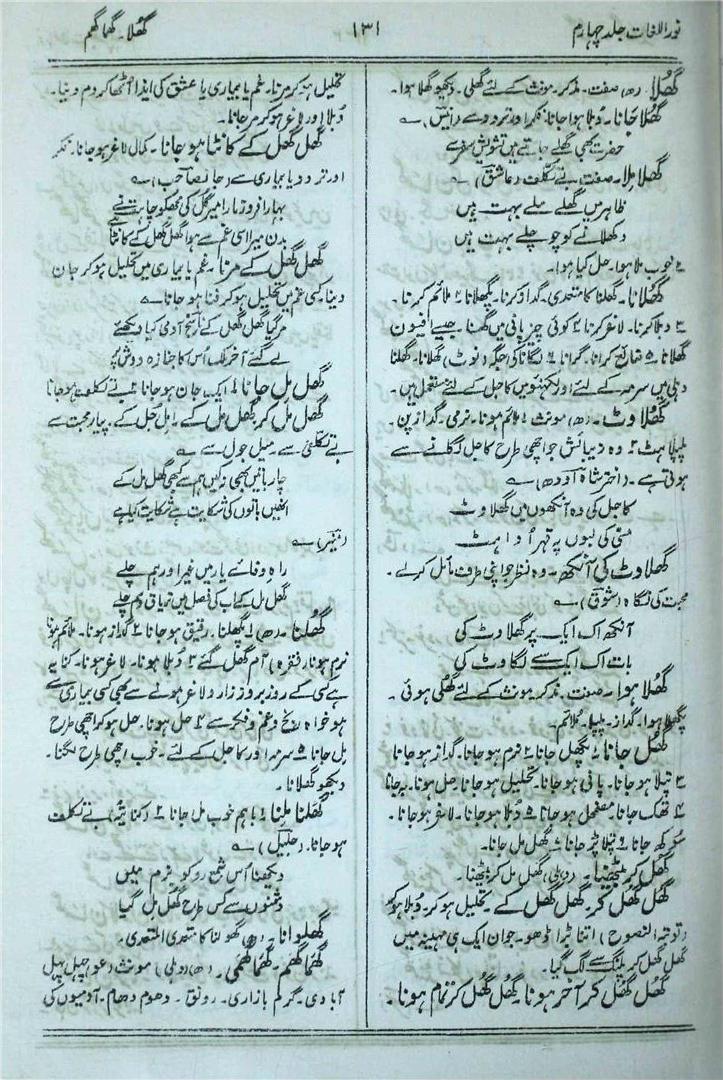 نور اللغات جلد چہارم
۱۳۱
گھُلا۔ گھما گھم
گھُلا (ھ) صفت۔ مذکر۔ مونث کے لئے گھلی۔ دیکھو گھلا ہوا۔
گھُلا جانا۔ دُبلا ہوا جانا۔ فکر اور تردد سے (انیس) ؎
حضرت بھی گھلے جاتے ہیں تشویش سفر سے
گھلا ملا۔ صفت۔ بے تکلف (عاشق) ؎
ظاہر میں گھلے ملے بہت ہیں
دکھلانے کو چوچلے بہت ہیں
۲ خوب ملا ہوا۔ حل کیا ہوا۔
گھُلانا۔ گھلنا کا متعدی۔ گداز کرنا۔ پگھلانا ۲ ملائم کرنا۔
۳ دبلا کرنا۔ لاغر کرنا ۴ کوئی چیز پانی میں گھسنا۔ جیسے افیون
گھلانا ۵ ضائع کرانا۔ گرانا ۶ لگانا کی جگہ (نوٹ) گھلانا۔ گھلنا
دہلی میں سرمہ کے لئے اور لکھنؤ میں کاجل کے لئے مستعمل ہیں۔
گھُلاوٹ۔ (ھ) مونث ۱ ملائم ہونا۔ نرمی۔ گداز پن
پلپلاہٹ ۲ وہ زیبائش جو اچھی طرح کاجل لگانے سے
ہوتی ہے۔ (اختر شاہ اودھ) ؎
کاجل کی وہ آنکھوں میں گھلاوٹ
مسّی کی لبوں پہ قہر اُداہٹ
گھلاوٹ کی آنکھ۔ وہ نظر جو اپنی طرف مائل کرلے۔
محبت کی نگاہ (شوق) ؎
آنکھ اک ایک پر گھلاوٹ کی
بات اک ایک سے لگاوٹ کی
گھُلا ہوا۔ صفت۔ مذکر۔ مونث کے لئے گھلی ہوئی۔
پگھلا ہوا۔ گداز۔ پلپلا۔ ملائم۔
گھُل جانا ۱ پگھل جانا ۲ نرم ہو جانا۔ گداز ہو جانا
۳ پتلا ہو جانا۔ پانی ہو جانا۔ تحلیل ہو جانا۔ حل ہونا۔ بہ جانا
۴ تھک جانا۔ مضمحل ہو جانا ۵ دُبلا ہو جانا۔ لاغر ہو جانا۔
سوکھ جانا ۶ پیلا پڑ جانا ۷ گھل مل جانا۔
گھُل کر بیٹھنا۔ (دہلی) گھل مل کر بیٹھنا۔
گھُل گھُل کر۔ گھل گھل کے۔ تحلیل ہو کر۔ دُبلا ہو کر
(توبۃ النصوح) اتنا بڑا ڈھو۔ جوان ایک ہی مہینہ میں
گھل گھل کر پلنگ سے لگ گیا۔
گھُل گھُل کر آخر ہونا۔ گھُل گھُل کر تمام ہونا۔
تحلیل ہو کر مرنا۔ غم یا بیماری یا عشق کی ایذا اُٹھا کر دم دینا۔
دُبلا اور لاغر ہو کر مر جانا۔
گھل گھل کے کانٹا ہو جانا۔ کمال لاغر ہو جانا۔ فکر
اور تردد یا بیماری سے (جانصاحب) ؎
بدن میرا اسی غم سے ہوا گھل گھل کے کانٹا
گھُل گھُل کے مرنا۔ غم یا بیماری میں تحلیل ہو کر جان
دینا۔ کسی غم میں تحلیل ہو کر فنا ہو جانا ؎
لے گئے آخر ملک اس کا جنازہ دوش پر
گھُل مِل جانا ۱ ایک جان ہو جانا ۲ بے تکلف ہو جانا
گھُل مل کر۔ گھُل مل کے۔ ہل جل کے۔ پیار محبت سے
بے تکلفی سے۔ میل جول سے ؎
چار باتیں بھی نہ کیں ہم سے کبھی گھل مل کے
انھیں باتوں کی شکایت ہے شکایت کیا ہے
(نیر) ؎
راہِ وفا سے یار میں غیر اور ہم چلے
گھُلنا۔ (ھ) ۱ پگھلنا۔ رقیق ہو جانا ۲ گداز ہونا۔ ملائم ہونا
نرم ہونا (فقرہ) آم گھل گئے ۳ دُبلا ہونا۔ لاغر ہونا۔ کنایہ
ہے کسی کے روز بروز زار و لاغر ہونے سے بھی کسی بیماری سے
ہو خواہ رنج و غم و فکر سے ۴ حل ہونا۔ حل ہو کر اچھی طرح
مل جانا ۵ سرمہ اور کاجل کے لئے۔ خوب اچھی طرح لگنا۔
دیکھو گھلانا۔
گھُلنا ملنا ۱ باہم خوب مل جانا ۲ (کنایۃً) بے تکلف
ہو جانا۔ (جلیل) ؎
دیکھنا اُس شمع رو کو بزم میں
دشمنوں سے کس طرح گھُل مل گیا
گھلوانا۔ (ھ) گھولنا کا متعدی المتعدی۔
گھما گھم۔ گھما گھمی۔ (ھ) (دہلی) مونث (عو) چہل پہل
آبادی۔ گرم بازاری۔ رونق۔ دھوم دھام۔ آدمیوں کی